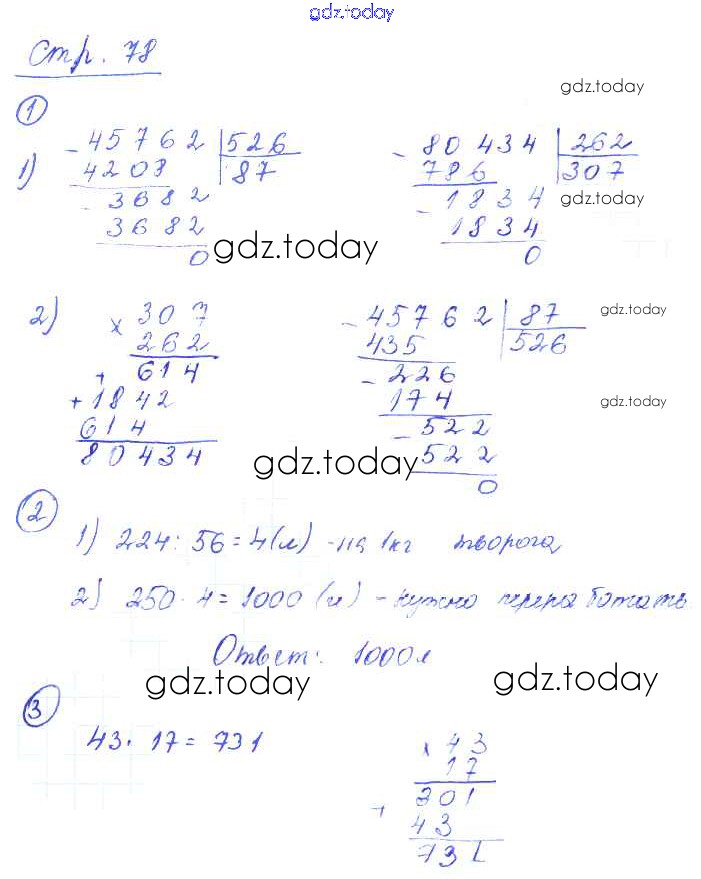 gdz.today
Стр. 78
gdz.today
1
1) - 45762 | 526 - 80434 | 262
4208 | 87 786 | 307
- 3682 - 1834 gdz.today
3682 1834
0 gdz.today 0
2) × 307 - 45762 | 87 gdz.today
262 435 | 526
+ 614 - 226
+ 1842 174 gdz.today
614 - 522
80434 gdz.today 522
0
2
1) 224 : 56 = 4 (л) - на 1 кг творога
2) 250 · 4 = 1000 (л) - нужно переработать
Ответ: 1000 л
gdz.today gdz.today
3
43 · 17 = 731 × 43
17
+ 301
43
731